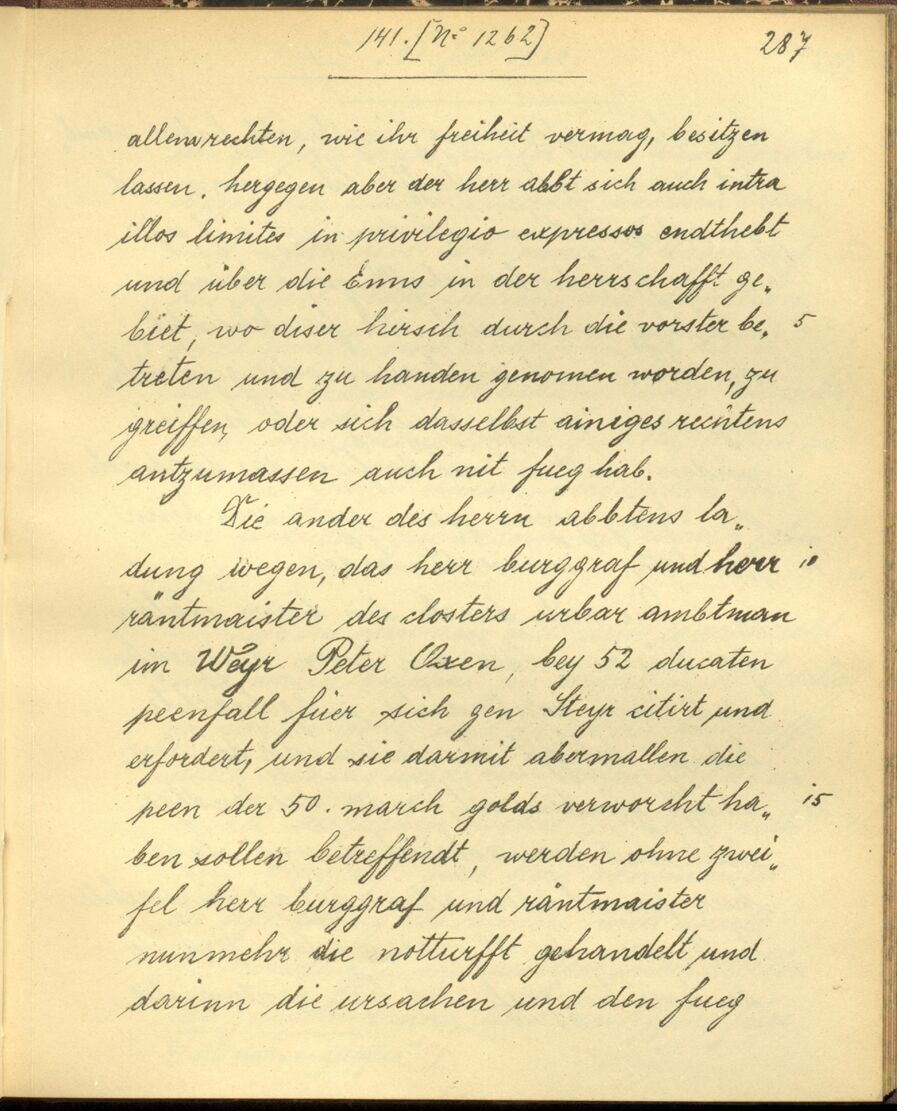 141. [No 1262]
287
allen rechten, wie ihr freiheit vermag, besitzen
lassen. hergegen aber der herr abbt sich auch intra
illos limites in privilegio expressos endthebt
und über die Enns in der herrschafft ge„
biet, wo diser hirsch durch die vorster be„ 5
treten und zu handen genomen worden, zu
greiffen, oder sich dasselbst ainiges rechtens
antzumassen auch nit fueg hab.
Die ander des herrn abbtens la„
dung wegen, das herr burggraf und herr 10
räntmaister des closters urbar ambtman
im Weyr Peter Oxen, bey 52 ducaten
peenfall füer sich gen Steyr citirt und
erfordert, und sie darmit abermallen die
peen der 50. march golds verworcht ha„ 15
ben sollen betreffendt, werden ohne zwei„
fel herr burggraf und räntmaister
nunmehr die notturfft gehandelt und
darinn die ursachen und den fueg